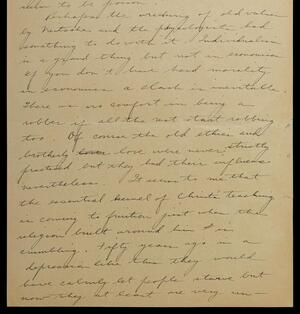 seem to be poison.
Perhaps the wrecking of old values
by Nietzsche and the physiologists had
something to do with it. Individualism
is a grand thing but not in economics.
If you don't have hard morality
in economics a clash is inevitable.
There is no comfort in being a
robber if all the rest start robbing
too. Of course the old ethics and
brotherly love were never strictly
practised but they had their influence
nevertheless. It seems to me that
the essential kernel of Christ's teaching
is coming to fruition just when the
religion built around him is
crumbling. Fifty years ago in a
depression like this they would
have calmly let people starve but
now they at least are very un